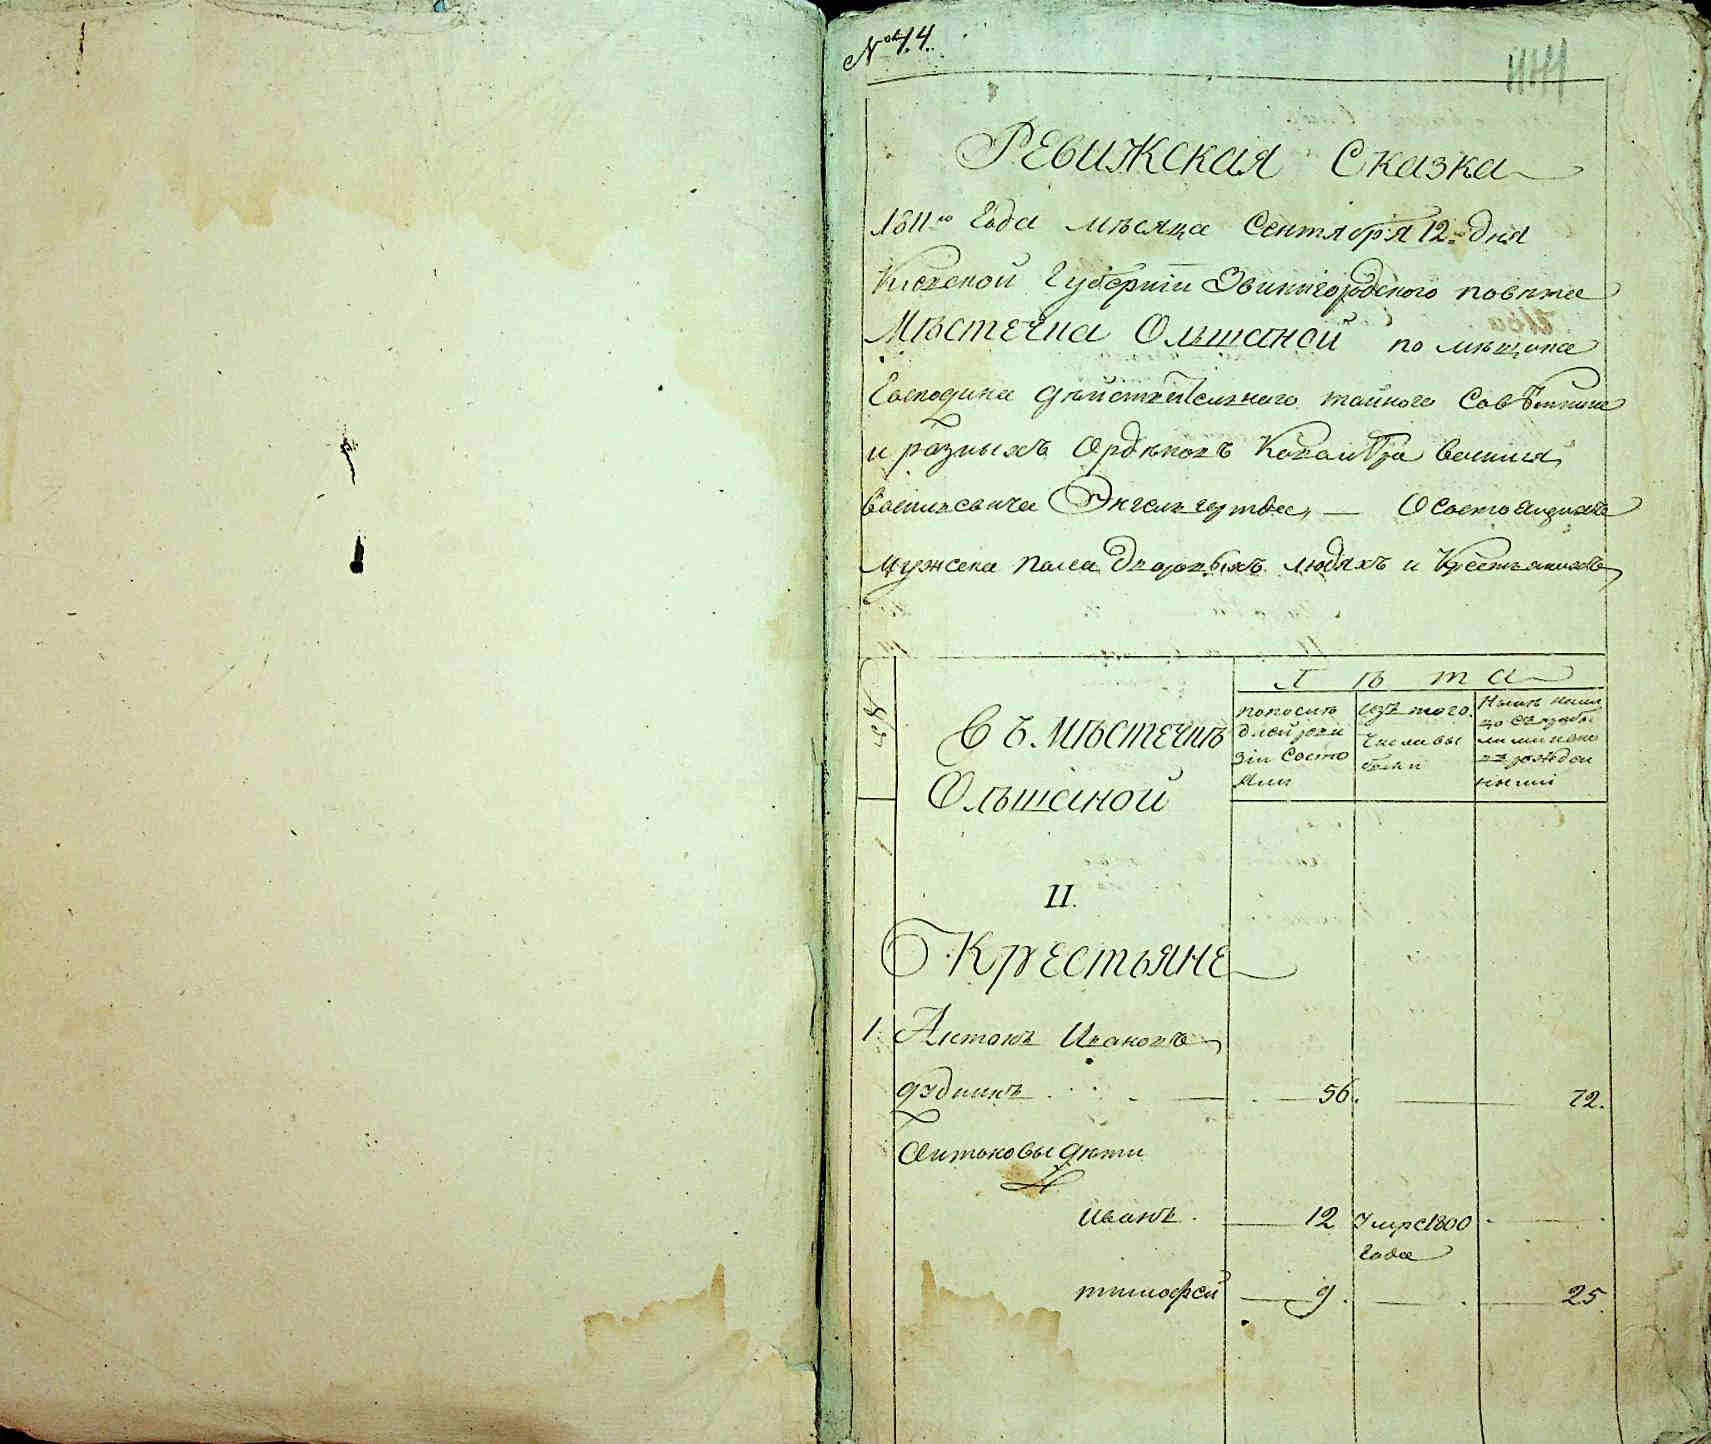 № 14.
Ревижская Сказка
1811го Года мѣсяца Сентября 12. дня
Киевской Губернии Звинигородского повѣта
Мѣстечка Ольшаной помѣщика
Господина дѣйствительного тайного Совѣтника
и разныхъ Орденовъ Кавалѣра Василия
Васильевича Энгельгардта, — О Состоящихъ
мужска пола Дворовыхъ людяхъ и Крестьянихъ
Лѣта
Въ Мѣстечкѣ
Ольшаной
по последней ревизіи Состояли
изъ того числа выбыли
Нынѣ на лицо съ прибылими и новорожденными
II.
Крестьяне
1 Антонъ Ивановъ
56. 72.
Антоновы дѣти
Иванъ. 12 Умре 1800
Года
тимофей 9. 25.